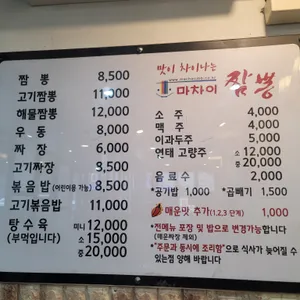 맛이 차이나는
마차이 짬뽕
짬 뽕 8,500
고기짬뽕 11,000
해물짬뽕 12,000
우 동 8,000
짜 장 6,000
고기짜장 8,500
볶음밥(어린이용 가능) 8,500
고기볶음밥 11,000
탕수육 미니 12,000
(부먹입니다) 소 15,000
중 20,000
소 주 4,000
맥 주 4,000
이과두주 5,000
연태 고량주 소 12,000
중 20,000
음료수 2,000
*공기밥 1,000 *곱빼기 1,500
매운맛 추가(1,2,3 단계) 1,000
*전메뉴 포장 및 밥으로 변경가능합니다
(매운짜장 제외)
*"주문과 동시에 조리함"으로 식사가 늦어질 수
있는점 양해 바랍니다.